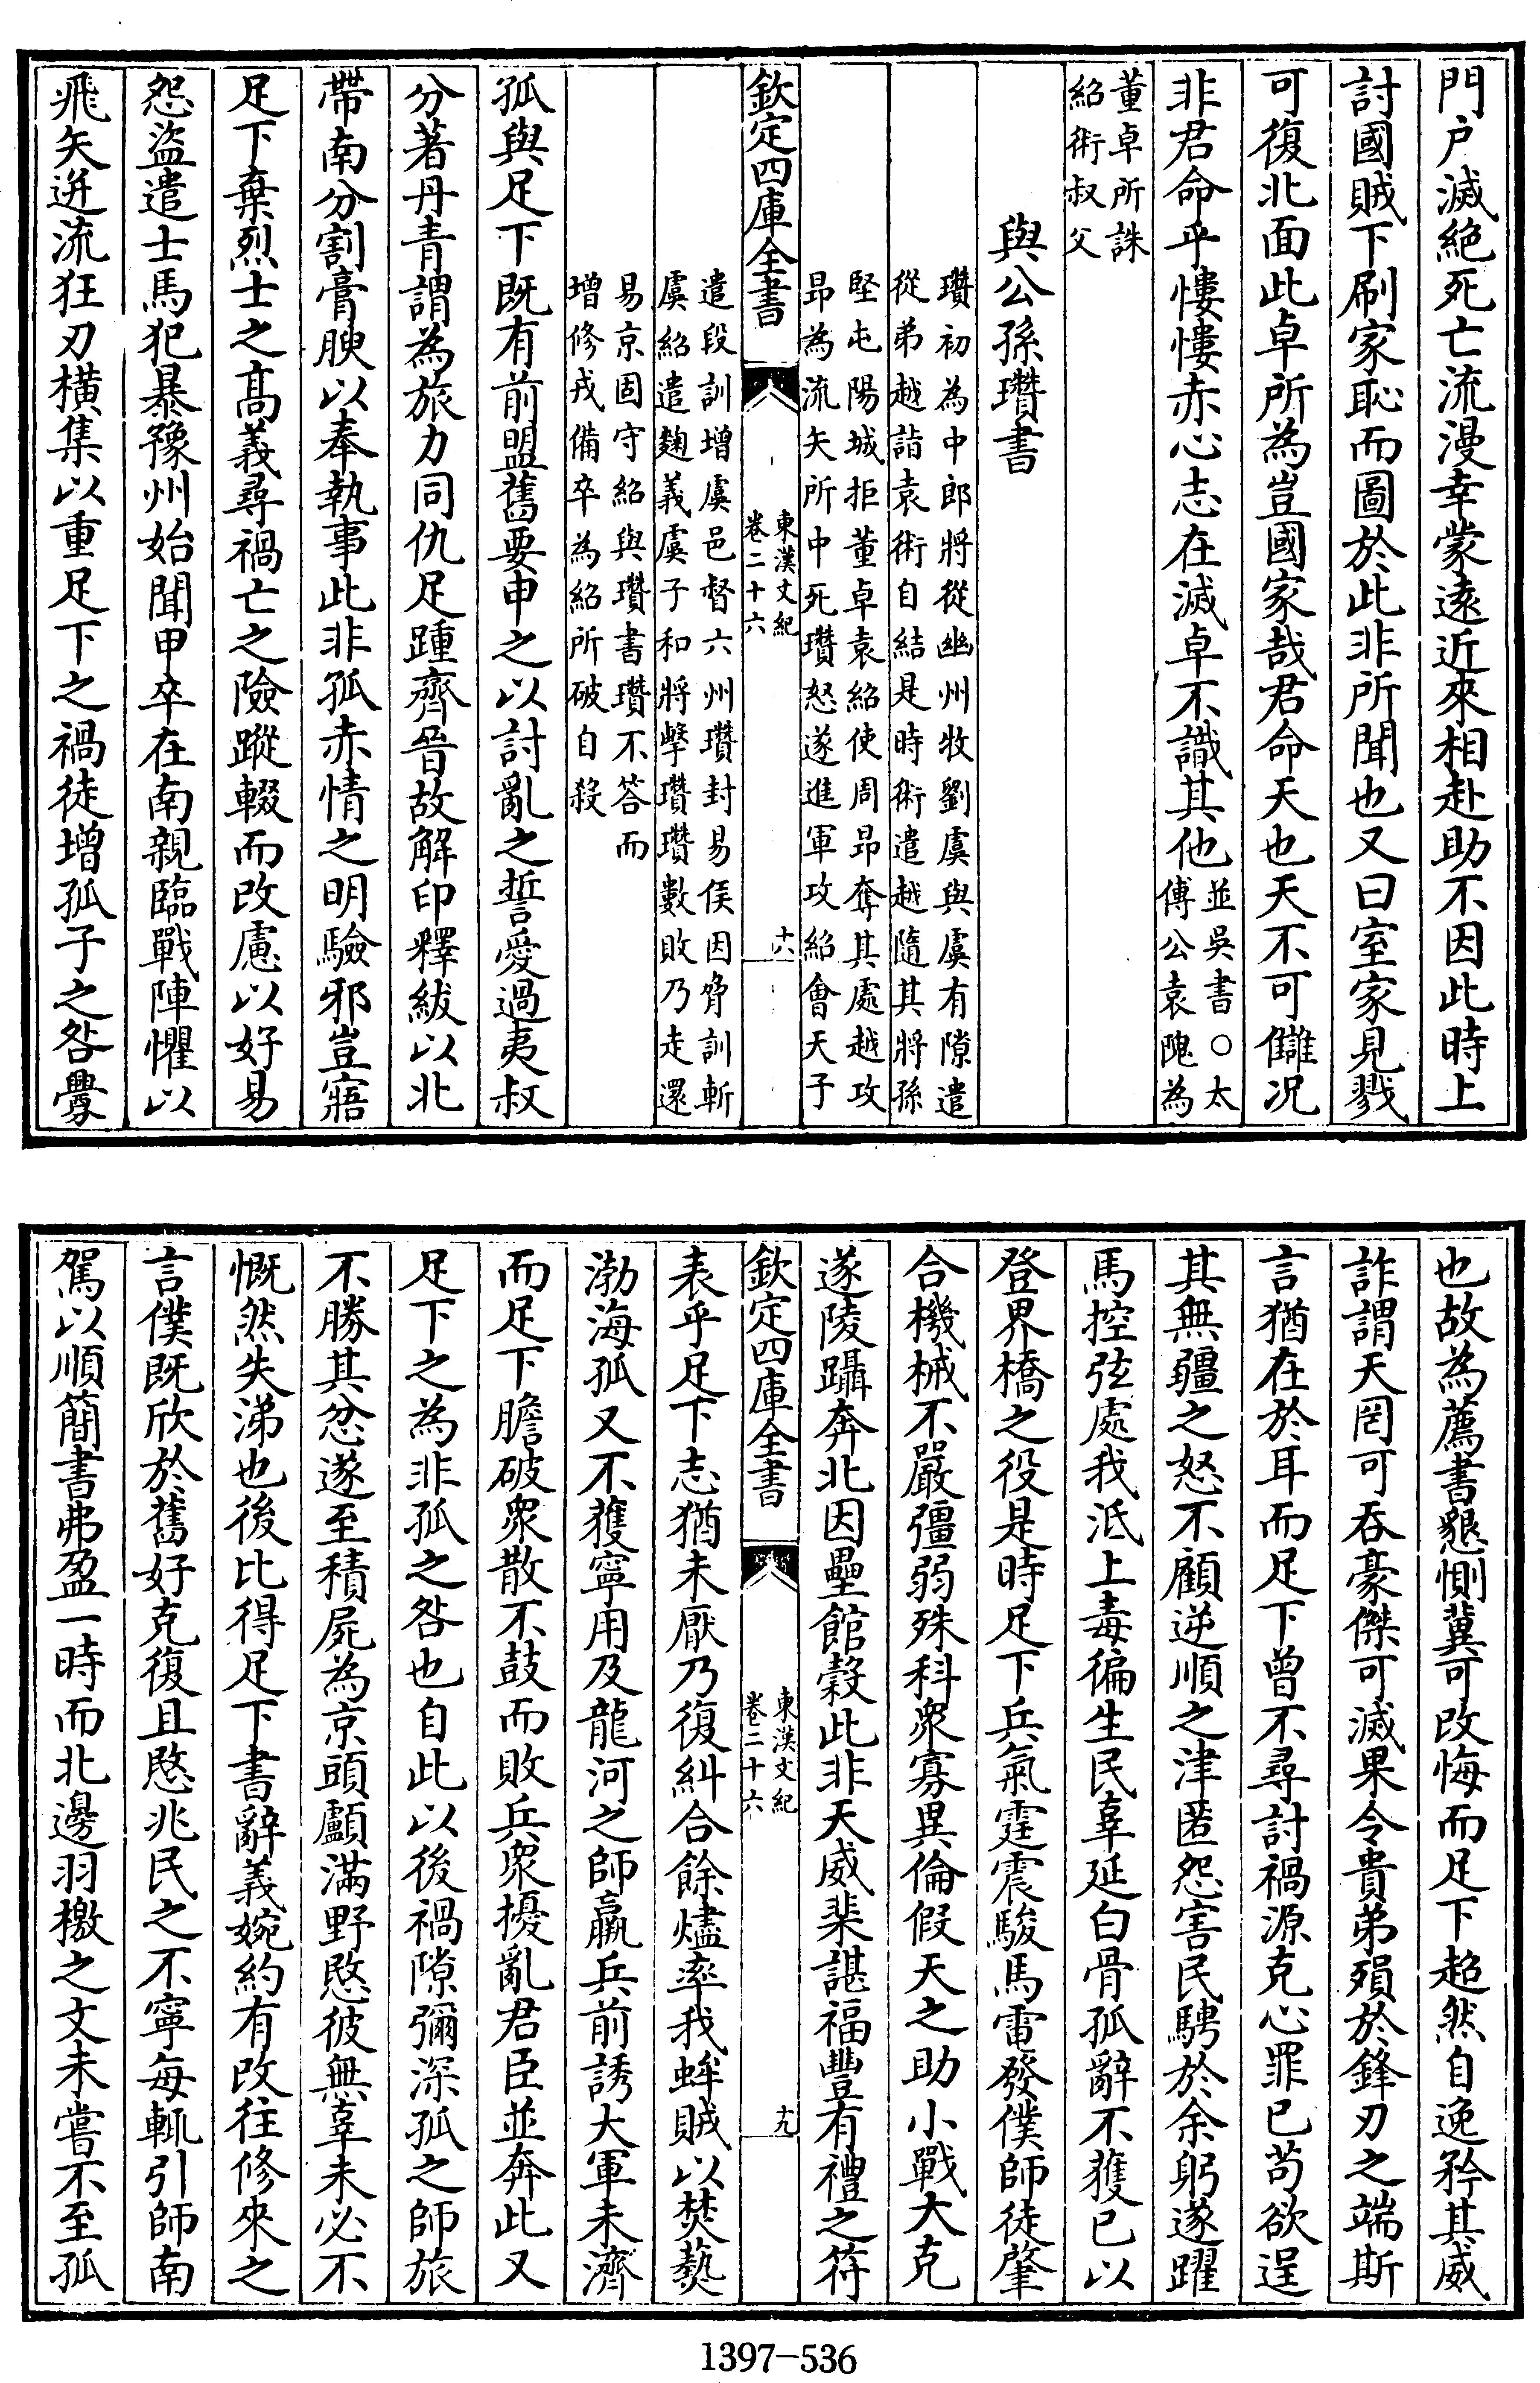 門户滅絶死亡流漫幸蒙遠近來相赴助不因此時上
討國賊下刷家恥而圖於此非所聞也又曰室家見戮
可復北面此卓所為豈國家哉君命天也天不可讎况
非君命乎慺慺赤心志在滅卓不識其他並吳書○太
傅公袁隗為
董卓所誅
紹術叔父
與公孫瓚書
瓚初為中郎將從幽州牧劉虞與虞有隙遣
從弟越詣袁術自結是時術遣越隨其將孫
堅屯陽城拒董卓袁紹使周昂奪其處越攻
昂為流矢所中死瓚怒遂進軍攻紹會天子
欽定四庫全書
東漢文紀
卷二十六
十八
遣段訓增虞邑督六州瓚封易侯因脅訓斬
虞紹遣麴義虞子和將擊瓚瓚數敗乃走還
易京固守紹與瓚書瓚不答而
增修戎備卒為紹所破自殺
孤與足下既有前盟舊要申之以討亂之誓愛過夷叔
分著丹青謂為旅力同仇足踵齊晉故解印釋紱以北
帶南分割膏腴以奉執事此非孤赤情之明驗邪豈寤
足下棄烈士之高義尋禍亡之險蹤輟而改慮以好易
怨盜遣士馬犯暴豫州始聞甲卒在南親臨戰陣懼以
飛矢迸流狂刃橫集以重足下之禍徒增孤子之咎釁
也故為薦書懇惻冀可改悔而足下超然自逸矜其威
詐謂天罔可吞豪傑可滅果令貴弟殞於鋒刃之端斯
言猶在於耳而足下曾不尋討禍源克心罪已苟欲逞
其無疆之怒不顧逆順之津匿怨害民騁於余躬遂躍
馬控弦處我泜上毒徧生民辜延白骨孤辭不獲已以
登界橋之役是時足下兵氣霆震駿馬雷發僕師徒肇
合機械不嚴彊弱殊科衆寡異倫假天之助小戰大克
遂陵躡奔北因壘館穀此非天威棐諶福豐有禮之符
欽定四庫全書
東漢文紀
卷二十六
十九
表乎足下志猶未厭乃復糾合餘燼率我蛑賊以焚爇
渤海孤又不獲寧用及龍河之師羸兵前誘大軍未濟
而足下膽破衆散不鼓而敗兵衆擾亂君臣並奔此又
足下之為非孤之咎也自此以後禍隙彌深孤之師旅
不勝其忿遂至積屍為京頭顱滿野愍彼無辜未必不
慨然失涕也後比得足下書辭義婉約有改往修來之
言僕既欣於舊好克復且愍兆民之不寧每輒引師南
駕以順簡書弗盈一時而北邊羽檄之文未嘗不至孤
1397-536